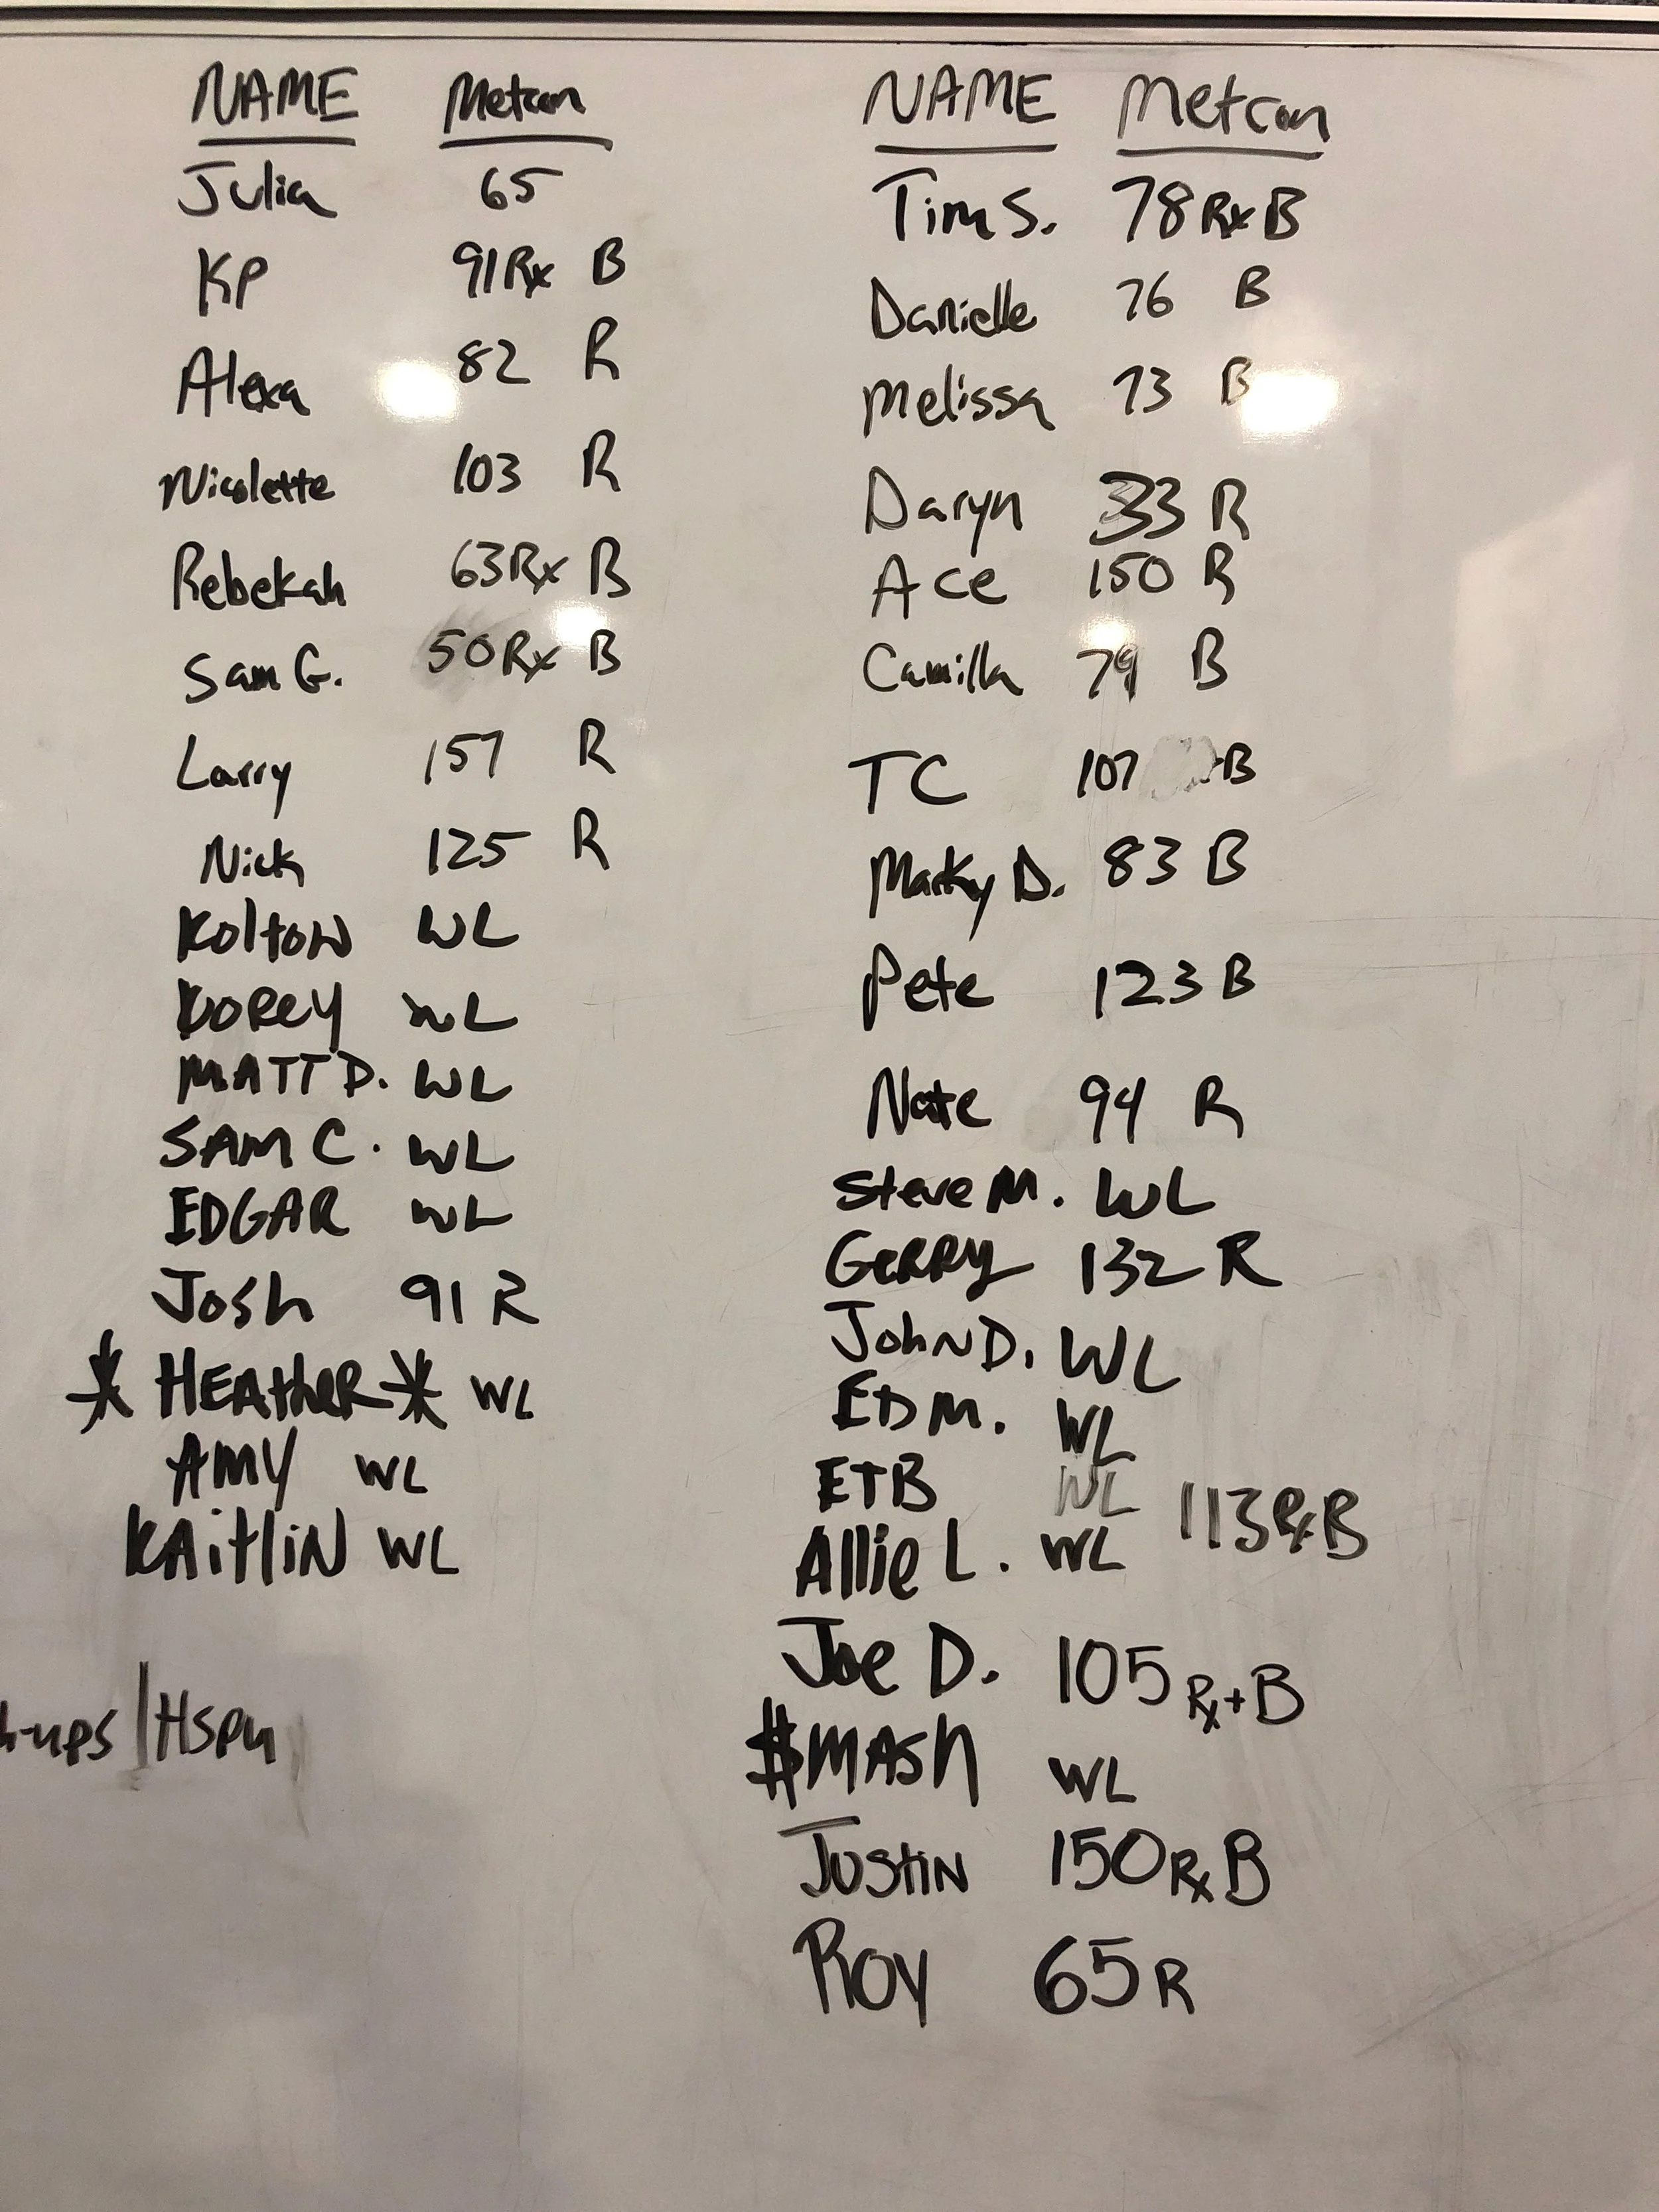 NAME Metcon
Julia 65
KP 91 Rx B
Alexa 82 R
Nicolette 103 R
Rebekah 63 Rx B
Sam G. 50 Rx B
Larry 157 R
Nick 125 R
Kolton WL
Korey WL
MATT D. WL
SAM C. WL
EDGAR WL
Josh 91 R
* HEAtheR * WL
AMY WL
KAitliN WL
h-ups | HSPU
NAME Metcon
Tim S. 78 Rx B
Danielle 76 B
Melissa 73 B
Daryn 33 R
Ace 150 R
Camilla 79 B
TC 107 B
Marky D. 83 B
Pete 123 B
Nate 94 R
Steve M. WL
GeRRy 132 R
JohN D. WL
ED M. WL
ETB WL 113 Rx B
Allie L. WL
Joe D. 105 Rx+ B
$MASh WL
JustiN 150 Rx B
Roy 65 R